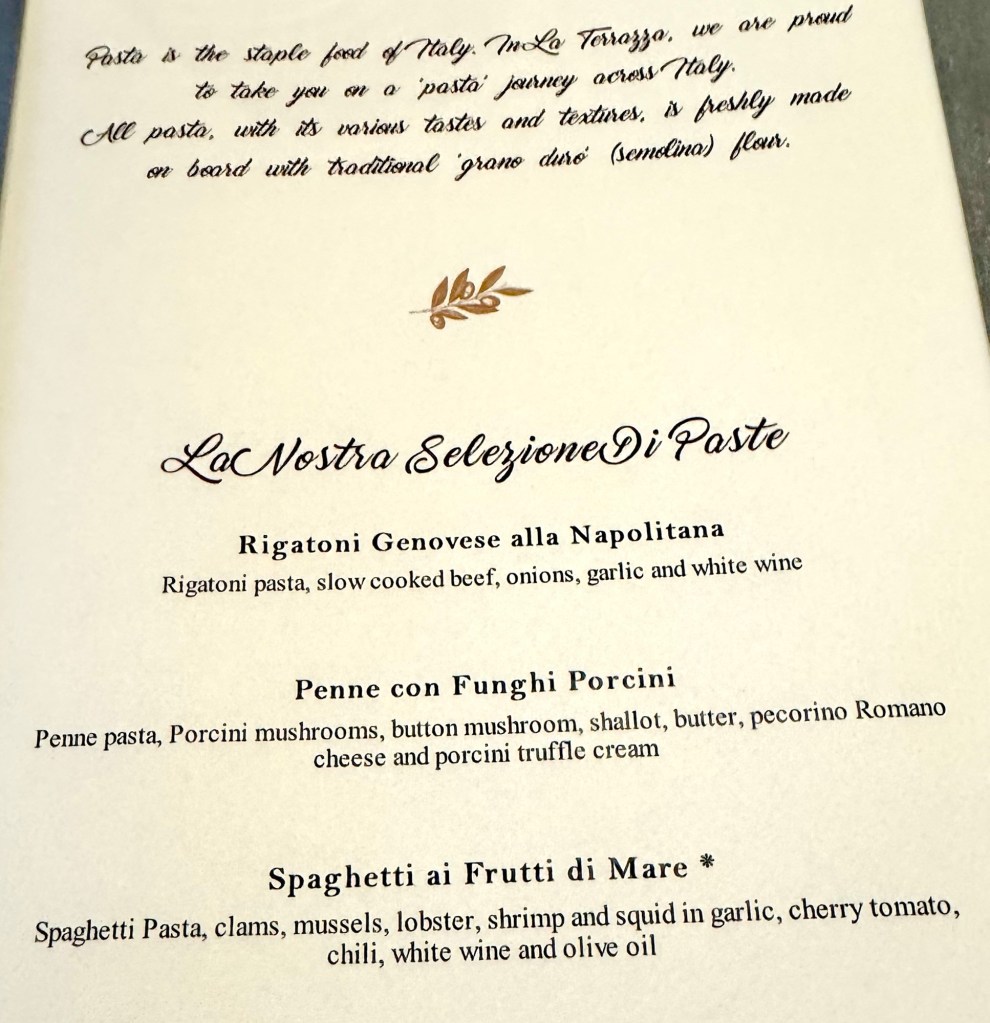 Pasta is the staple food of Italy. In La Terrazza, we are proud
to take you on a 'pasta' journey across Italy.
All pasta, with its various tastes and textures, is freshly made
on board with traditional 'grano duro' (semolina) flour.
La Nostra Selezione Di Paste
Rigatoni Genovese alla Napolitana
Rigatoni pasta, slow cooked beef, onions, garlic and white wine
Penne con Funghi Porcini
Penne pasta, Porcini mushrooms, button mushroom, shallot, butter, pecorino Romano
cheese and porcini truffle cream
Spaghetti ai Frutti di Mare *
Spaghetti Pasta, clams, mussels, lobster, shrimp and squid in garlic, cherry tomato,
chili, white wine and olive oil